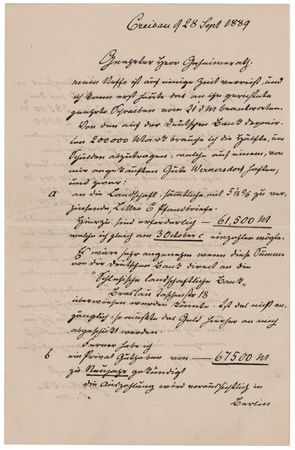 Creisau d 28 Sept 1889
Geehrter Herr Geheimerath.
mein Neffe ist auf einige Zeit verreist, und
ich kann erst heute das an ihn gerichtete
geehrte Schreiben vom 21 d M beantworten.
Von den auf der Deutschen Bank deponir-
ten 200000 Mark brauche ich die Hälfte, um
Schulden abzutragen, welche auf einem, von
mir angekauften Gute Wernersdorf haften,
und zwar:
a an die Landschaft sämmtliche mit 5 % zu ver-
zinsende Littr. Pfandbriefe.
Hierzu sind erforderlich — 61,500 M
welche ich gleich am 3 October c einzahlen möchte.
Es wäre sehr angenehm wenn diese Summe
von der Deutschen Bank direct an die
"Schlesische Landschaftliche Bank,
Breslau 18
überwiesen werden könnte. Ist das nicht an-
gänglich, so müßte das Geld hierher an mich
abgeschickt werden.
Ferner habe ich
b ein Privat Guthaben von — 67500 M
zu Neujahr gekündigt
die Auszahlung wird voraussichtlich in
Berlin